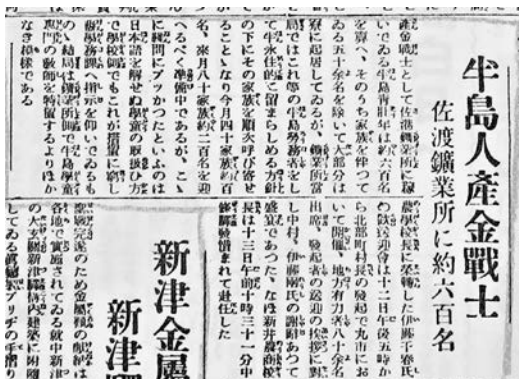 半島人産金戰士
佐渡鑛業所に約六百名
産金戰士として佐渡鑛業所に稼
いでゐる半島靑壯年は約六百名
を算へ、そのうち家族を伴つて
ゐる五十余名を除いて大部分は
寮に起居してゐるが、鑛業所當
局ではこれ等の半島勞務者をし
て半永住的に留まらしめる方針
の下にその家族を順次呼び寄せ
ることゝなり今月四十家族約百
名、來月八十家族約二百名を迎
へるべく準備中であるが、こゝ
に難問にブツかつたといふのは
日本語を解せぬ學童の取扱ひ方
で學校側でもこれが措置に窮し
縣學務課へ指示を仰いでゐるも
の結局は鑛業所側で半島學童
專門の敎師を特置するよりほか
なき模樣である
農學校長に榮轉した伊藤千春氏
の歡送迎會は十二日午後五時か
ら北部町村長の發起で丸市にお
いて開催、地方有力者八十余名
出席、發起者の送迎の挨拶に對
し中村、伊藤兩氏の謝辭あつて
盛宴であつた、なほ新井農商校
長は十三日午前十時三十一分中
條驛發惜まれて赴任した
新津金屬
新津驛
聖戰完遂のため金屬類の獻納は
各地で實施されてゐる就中新津
の大玄關新津驛構內建築に附隨
してゐる眞鍮製ブリッヂの手摺り